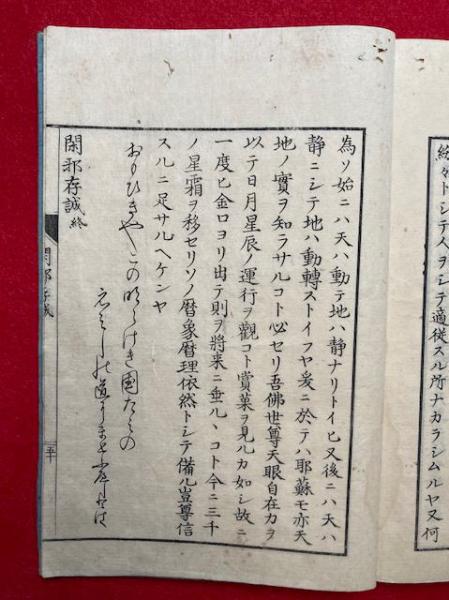 紛々トシテ人ヲシテ適從スル所ナカラシムルヤ又何
為ソ始ニハ天ハ動テ地ハ静ナリトイヒ又後ニハ天ハ
静ニシテ地ハ動轉ストイフヤ爰ニ於テハ耶蘇モ亦天
地ノ實ヲ知ラサルコト必セリ吾佛世尊天眼自在力ヲ
以テ日月星辰ノ運行ヲ觀コト掌菓ヲ見ルカ如シ故ニ
一度ヒ金口ヨリ出テ則ヲ將来ニ垂ルヽコト今ニ三千
ノ星霜ヲ移セリソノ暦象暦理依然トシテ備ル豈尊信
スルニ足サルヘケンヤ
おもひきや
この
けき国たみの
の道
閑邪存誠終
閑邪存誠
五十